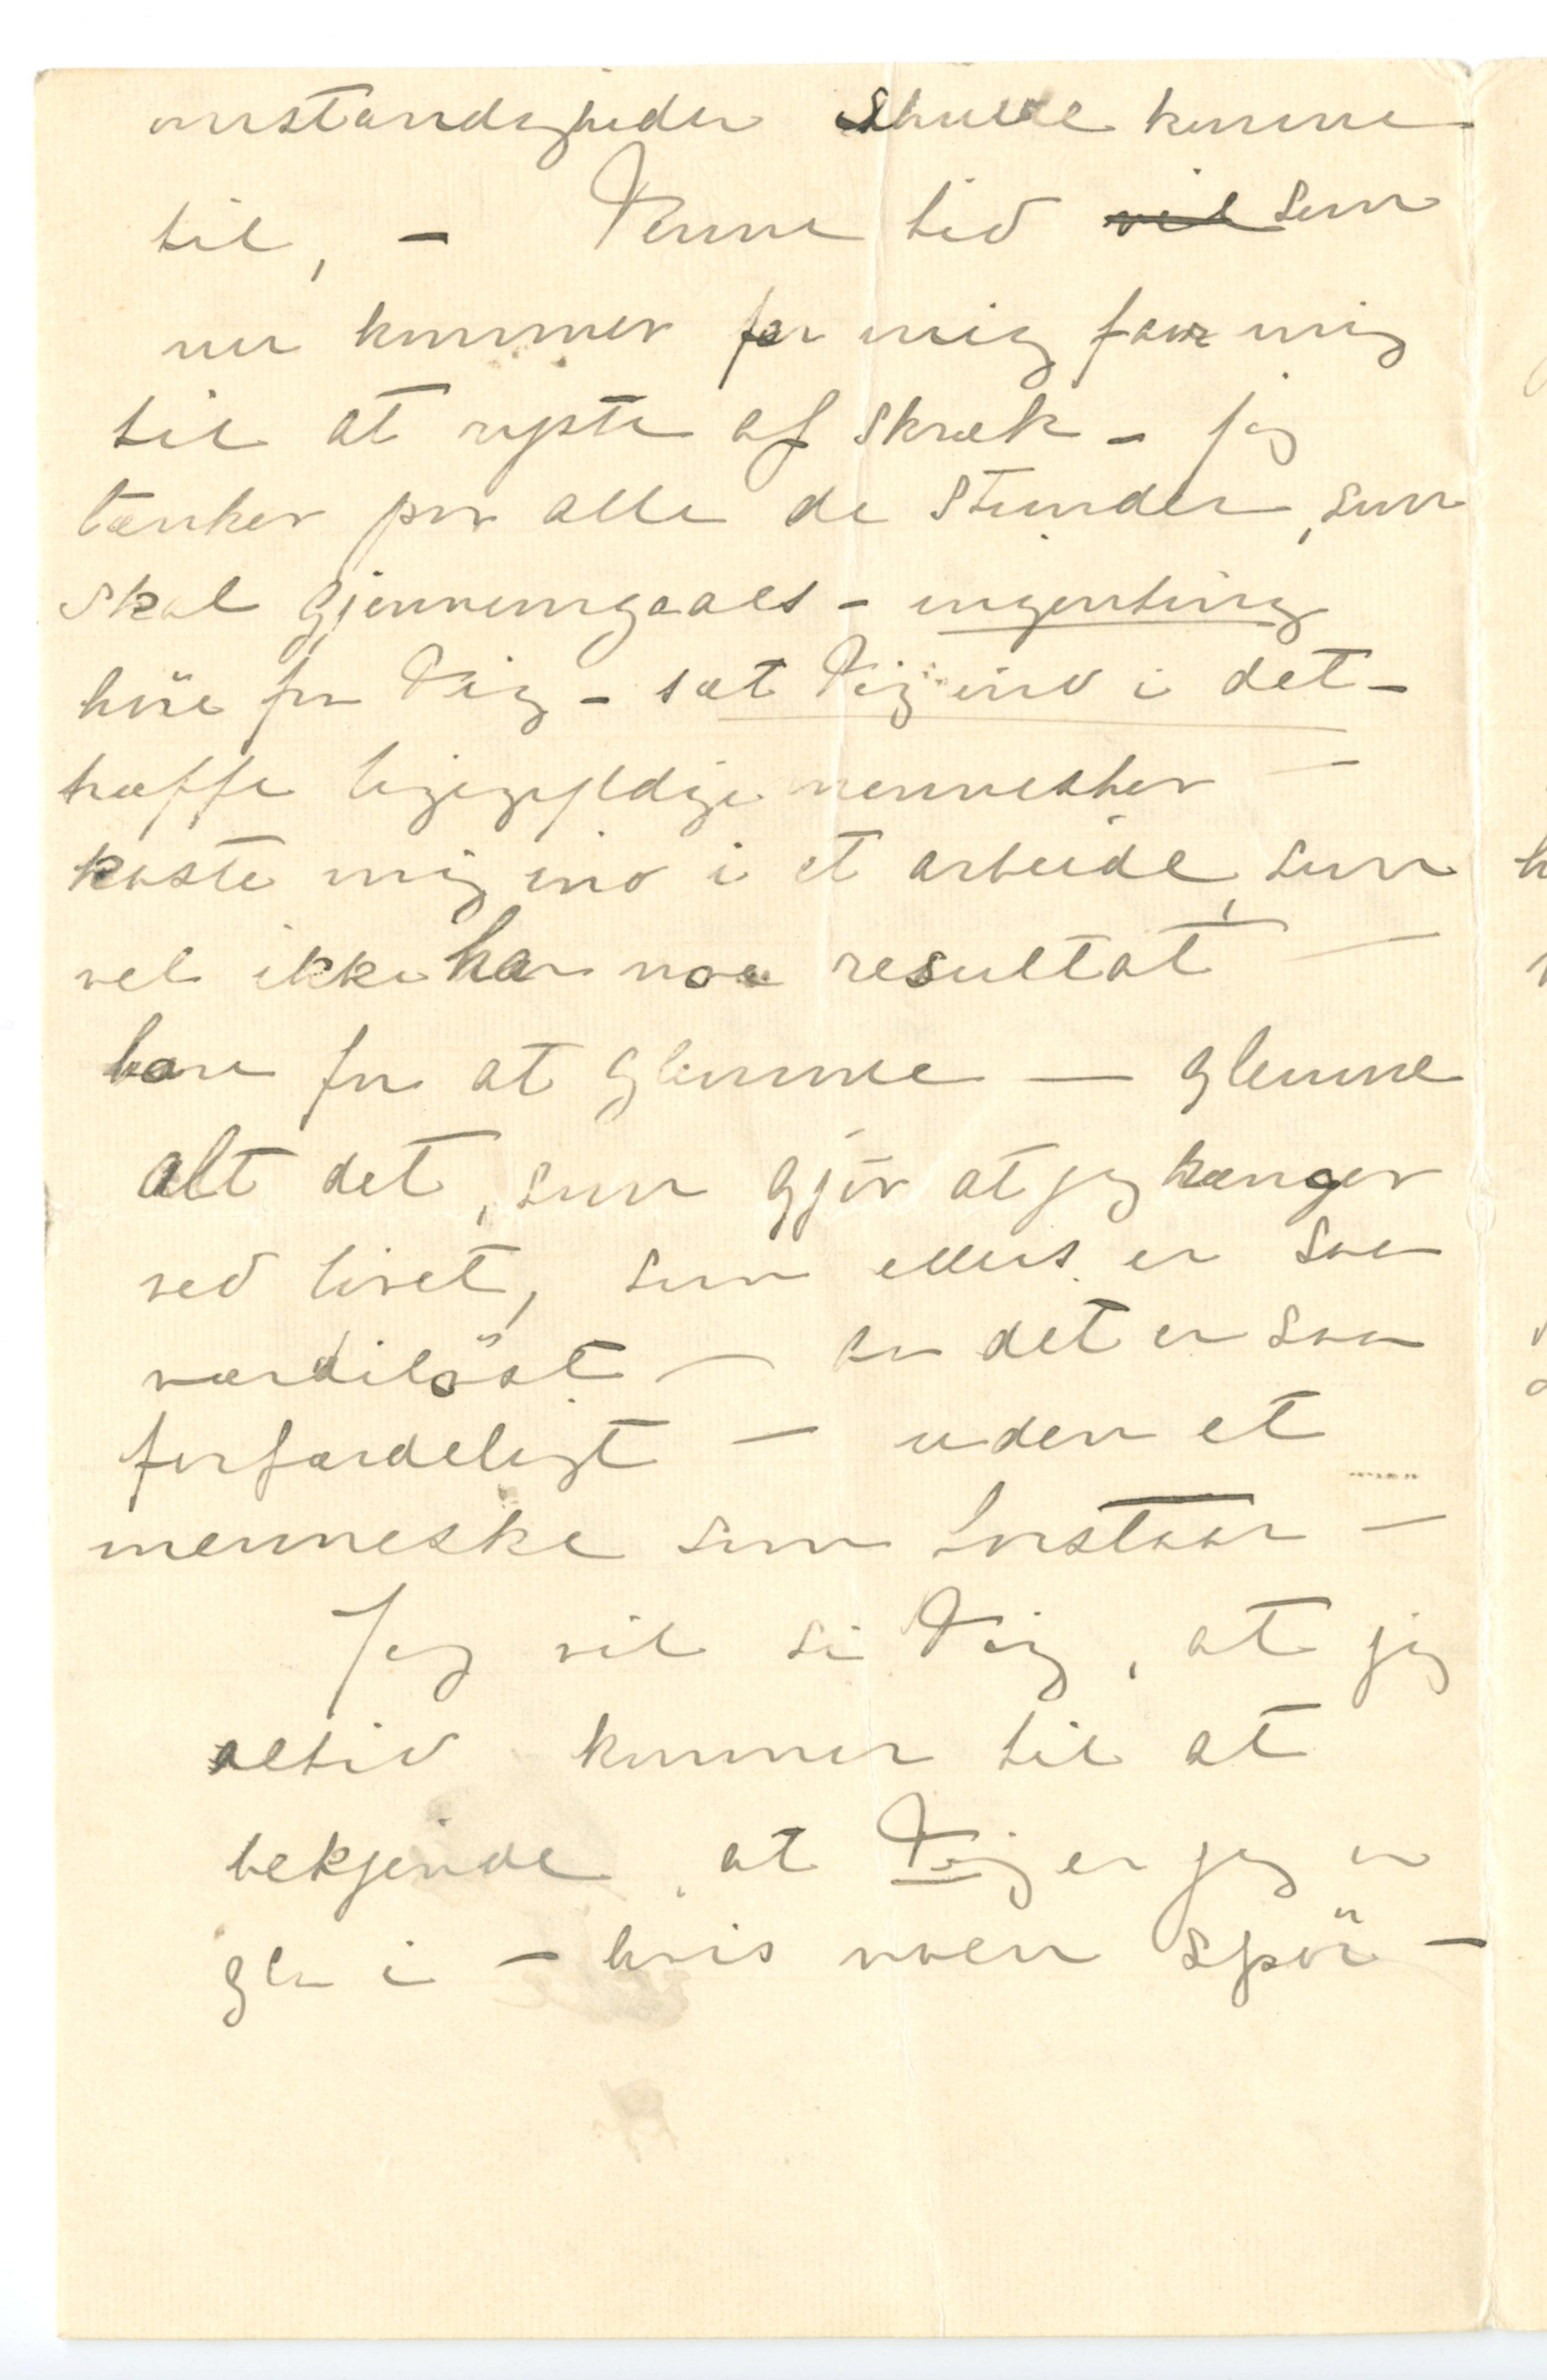 omstændigheder skulde komme
til, – Denne tid ~~vil~~ som
nu kommer for mig faar mig
til at ryste af skræk – Jeg
tænker paa alle de stunder, som
skal gjennemgaaes – ingenting
höre fra Dig – sæt Dig ind i det –
træffe ligegyldige mennesker –
kaste mig ind i et arbeide, som
vel ikke har noe resultat –
bare for at glemme – glemme
alt det, som gjör at jeg hænger
ved livet, som ellers er saa
værdilöst – aa det er saa
forfærdeligt – uden et
menneske som forstaar –
Jeg vil si Dig, at jeg
altid kommer til at
bekjende, at Dig er jeg
gla i – hvis noen spör –